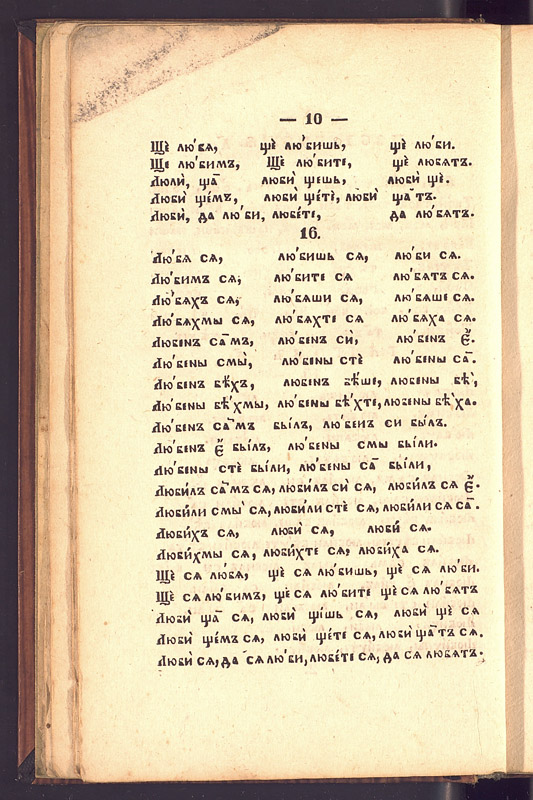 — 10 —
Щѐ лю́бѧ, щѐ лю́бишь, щѐ лю́би.
Щѐ лю́бимъ, Щѐ лю́бите, щѐ любѧтъ.
Люлѝ, ща̑ любѝ щешь, любѝ щѐ.
Любѝ ще́мъ, любѝ ще́тѐ, любѝ ща̑тъ.
Любѝ, да лю́би, любе́те, да лю́бѧтъ.
16.
Лю́бѧ сѧ, лю́бишь сѧ, лю́би сѧ.
Лю́бимъ сѧ, лю́бите сѧ лю́бѧтъ сѧ.
Лю́бѧхъ сѧ, лю́бѧши сѧ, лю́бѧше сѧ.
Лю́бѧхмы сѧ, лю́бѧхте сѧ лю́бѧха сѧ.
Любенъ са̑мъ, лю́бенъ сѝ, лю́бенъ є̑.
Лю́бены смы̀, лю́бены стѐ лю́бены са̑.
Лю́бенъ бѣ́хъ, любенъ бѣ́ше, любены бѣ̀,
Лю́бены бѣ́хмы, лю́бены бѣ́хте, любены бѣ́ха.
Лю́бенъ са̑мъ бы́лъ, лю́бенъ си бы́лъ.
Лю́бенъ є̑ бы́лъ, лю́бены смы бы́ли.
Лю́бены стѐ бы́ли, лю́бены са̑ бы́ли,
Люби́лъ са̑мъ сѧ, люби́лъ сѝ сѧ, люби́лъ сѧ є̑.
Люби́ли смы̀ сѧ, люби́ли стѐ сѧ, люби́ли сѧ са̑.
Люби́хъ сѧ, любѝ сѧ, люби́ сѧ.
Люби́хмы сѧ, люби́хте сѧ, люби́ха сѧ.
Щѐ сѧ лю́бѧ, щѐ сѧ лю́бишь, щѐ сѧ лю́би.
Щѐ сѧ лю́бимъ, щѐ сѧ лю́бите щѐ сѧ лю́бѧтъ
Любѝ ща̑ сѧ, любѝ щі́шь сѧ, любѝ щѐ сѧ
Любѝ ще́мъ сѧ, любѝ ще́те сѧ, любѝ ща̑тъ сѧ.
Любѝ сѧ, да сѧ лю́би, любе́ти сѧ, да сѧ любѧтъ.